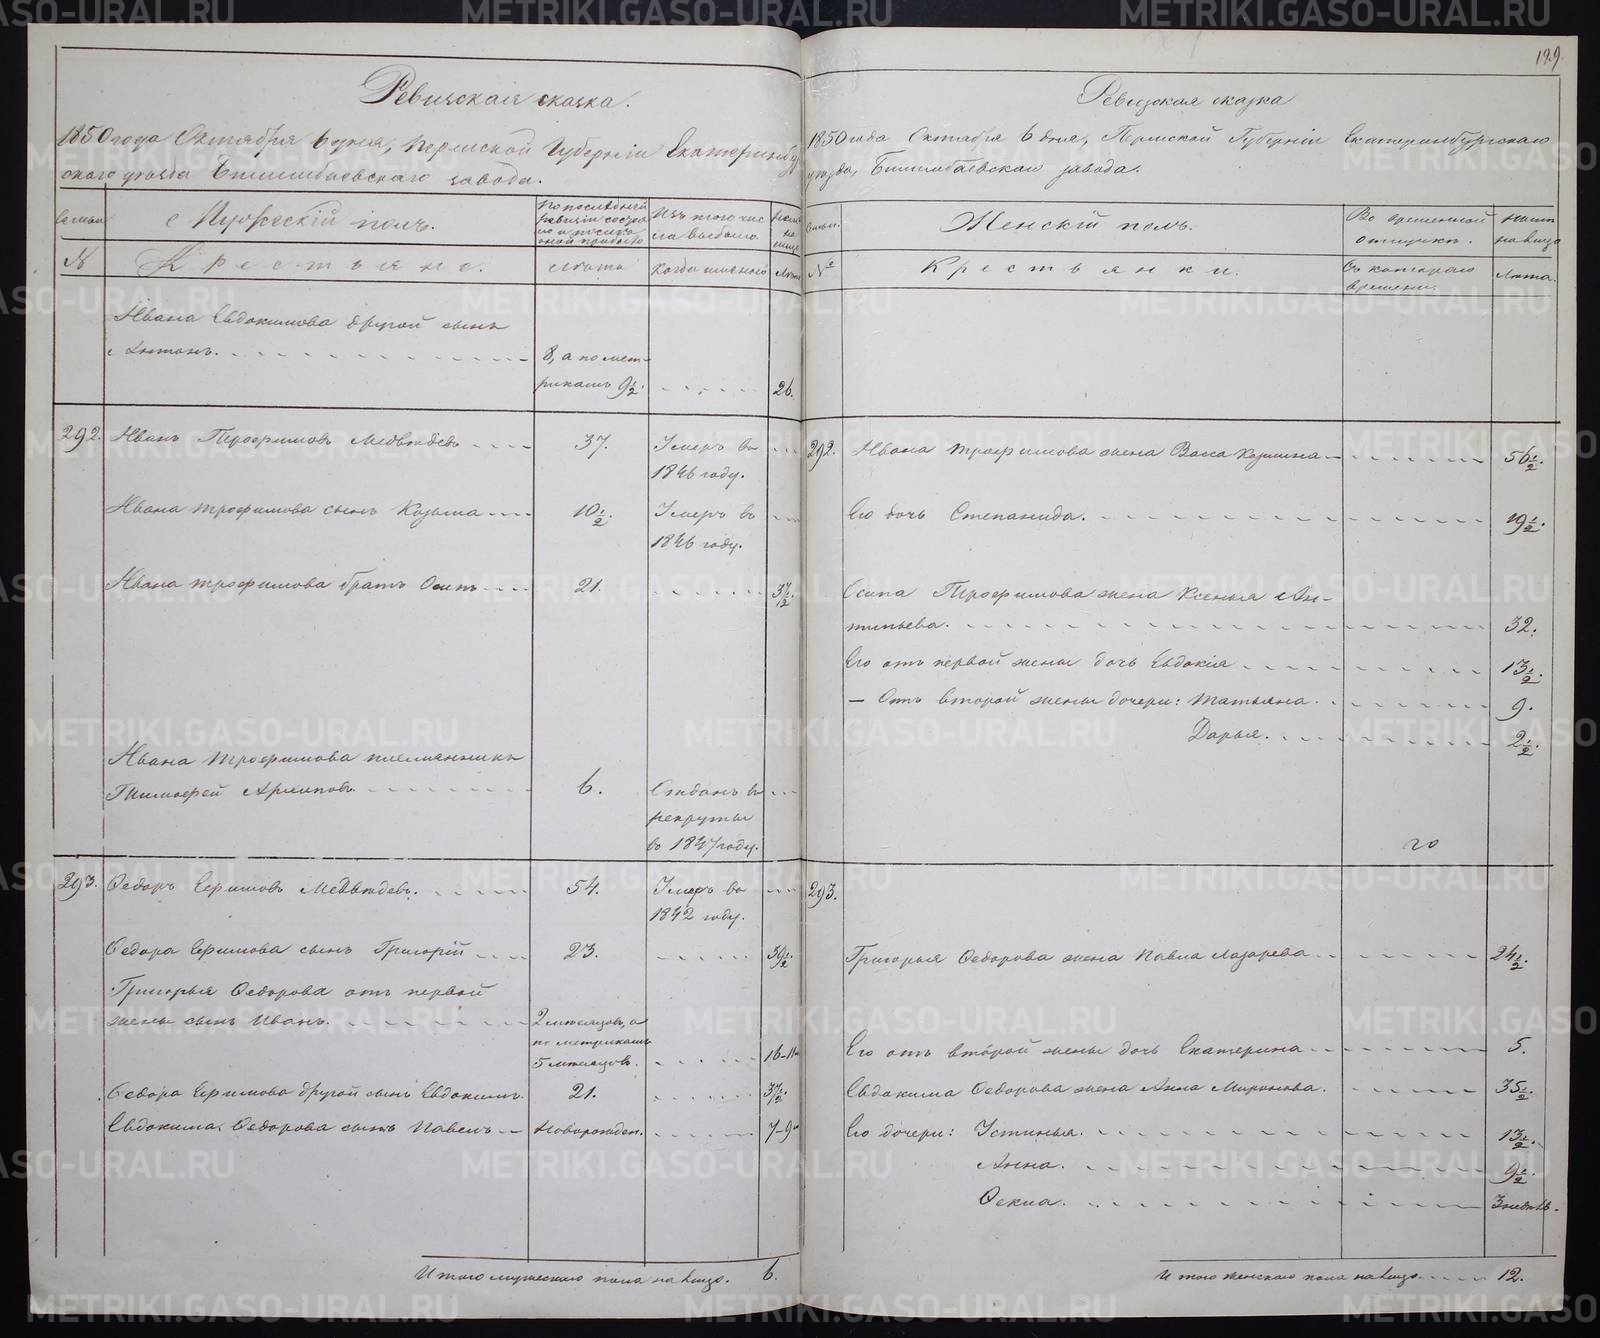 Ревизская сказка.
1850 года Октября 6 дня, Пермской Губернии Екатеринбург-
скаго уезда Билимбаевскаго завода.
Семьи
Мужескій полъ.
По последней ревизіи состояло и после оной прибыло
Изъ того числа выбыло.
Ныне на лицо
№
Крестьяне.
Лета
Когда именно
Лета
Ивана Евдокимова другой сынъ
Антонъ.
8, а по мет-
рикамъ 9½.
26.
292. Иванъ Трофимовъ Медведевъ
37.
Умеръ въ
1846 году.
Ивана Трофимова сынъ Козьма
10½.
Умеръ въ
1846 году.
Ивана Трофимова братъ Осипъ
21.
37½.
Ивана Трофимова племянникъ
Тимофей Архиповъ
6.
Отданъ въ
рекруты
въ 1847 году.
293. Федоръ Ефимовъ Медведевъ.
54.
Умеръ въ
1842 году.
Федора Ефимова сынъ Григорій
23.
39½.
Григорья Федорова отъ первой
жены сынъ Иванъ.
2 месяцовъ, а
по метрикамъ
5 месяцовъ.
16-11м
Федора Ефимова другой сынъ Евдокимъ.
21.
37½.
Евдокима Федорова сынъ Павелъ
Новорожден.
7-9м
Итого мужескаго пола на лицо. 6.
129
Ревизская сказка
1850 года Октября 6 дня, Пермской Губерніи Екатеринбургскаго
уезда, Билимбаевскаго завода.
Семьи.
Женскій полъ.
Во временной
отлучке.
Ныне
на лицо
№
Крестьянки.
Съ котораго
времени.
Лета.
292. Ивана Трофимова жена Васса Козмина
56½.
Его дочь Степанида.
19½.
Осипа Трофимова жена Ксенья Ан-
типьева.
32.
Его отъ первой жены дочь Евдокія
13½.
— Отъ второй жены дочери: Татьяна.
9.
Дарья.
2½.
293.
Григорья Федорова жена Павла Лазарева
24½.
Его отъ второй жены дочь Екатерина
5.
Евдокима Федорова жена Анна Миронова.
35½.
Его дочери: Устинья.
13½.
Анна.
9½.
Фекла.
3 недель.
Итого женскаго пола на лицо 12.
METRIKI.GASO-URAL.RU